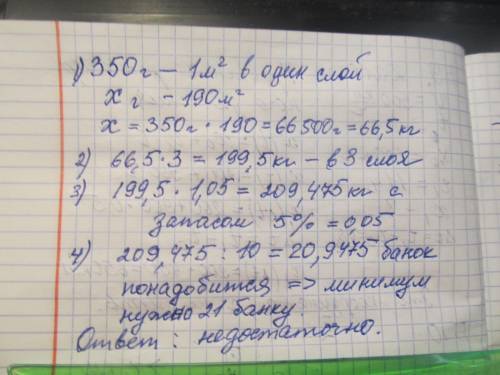 1) 350г – 1м² в один слой
х г – 190м²
х = 350г · 190 = 66500г = 66,5кг
2) 66,5 · 3 = 199,5кг – в 3 слоя
3) 199,5 · 1,05 = 209,475кг с
запасом 5% = 0,05
4) 209,475 : 10 = 20,9475 банок
понадобится => минимум
нужно 21 банку.
Ответ : недостаточно.